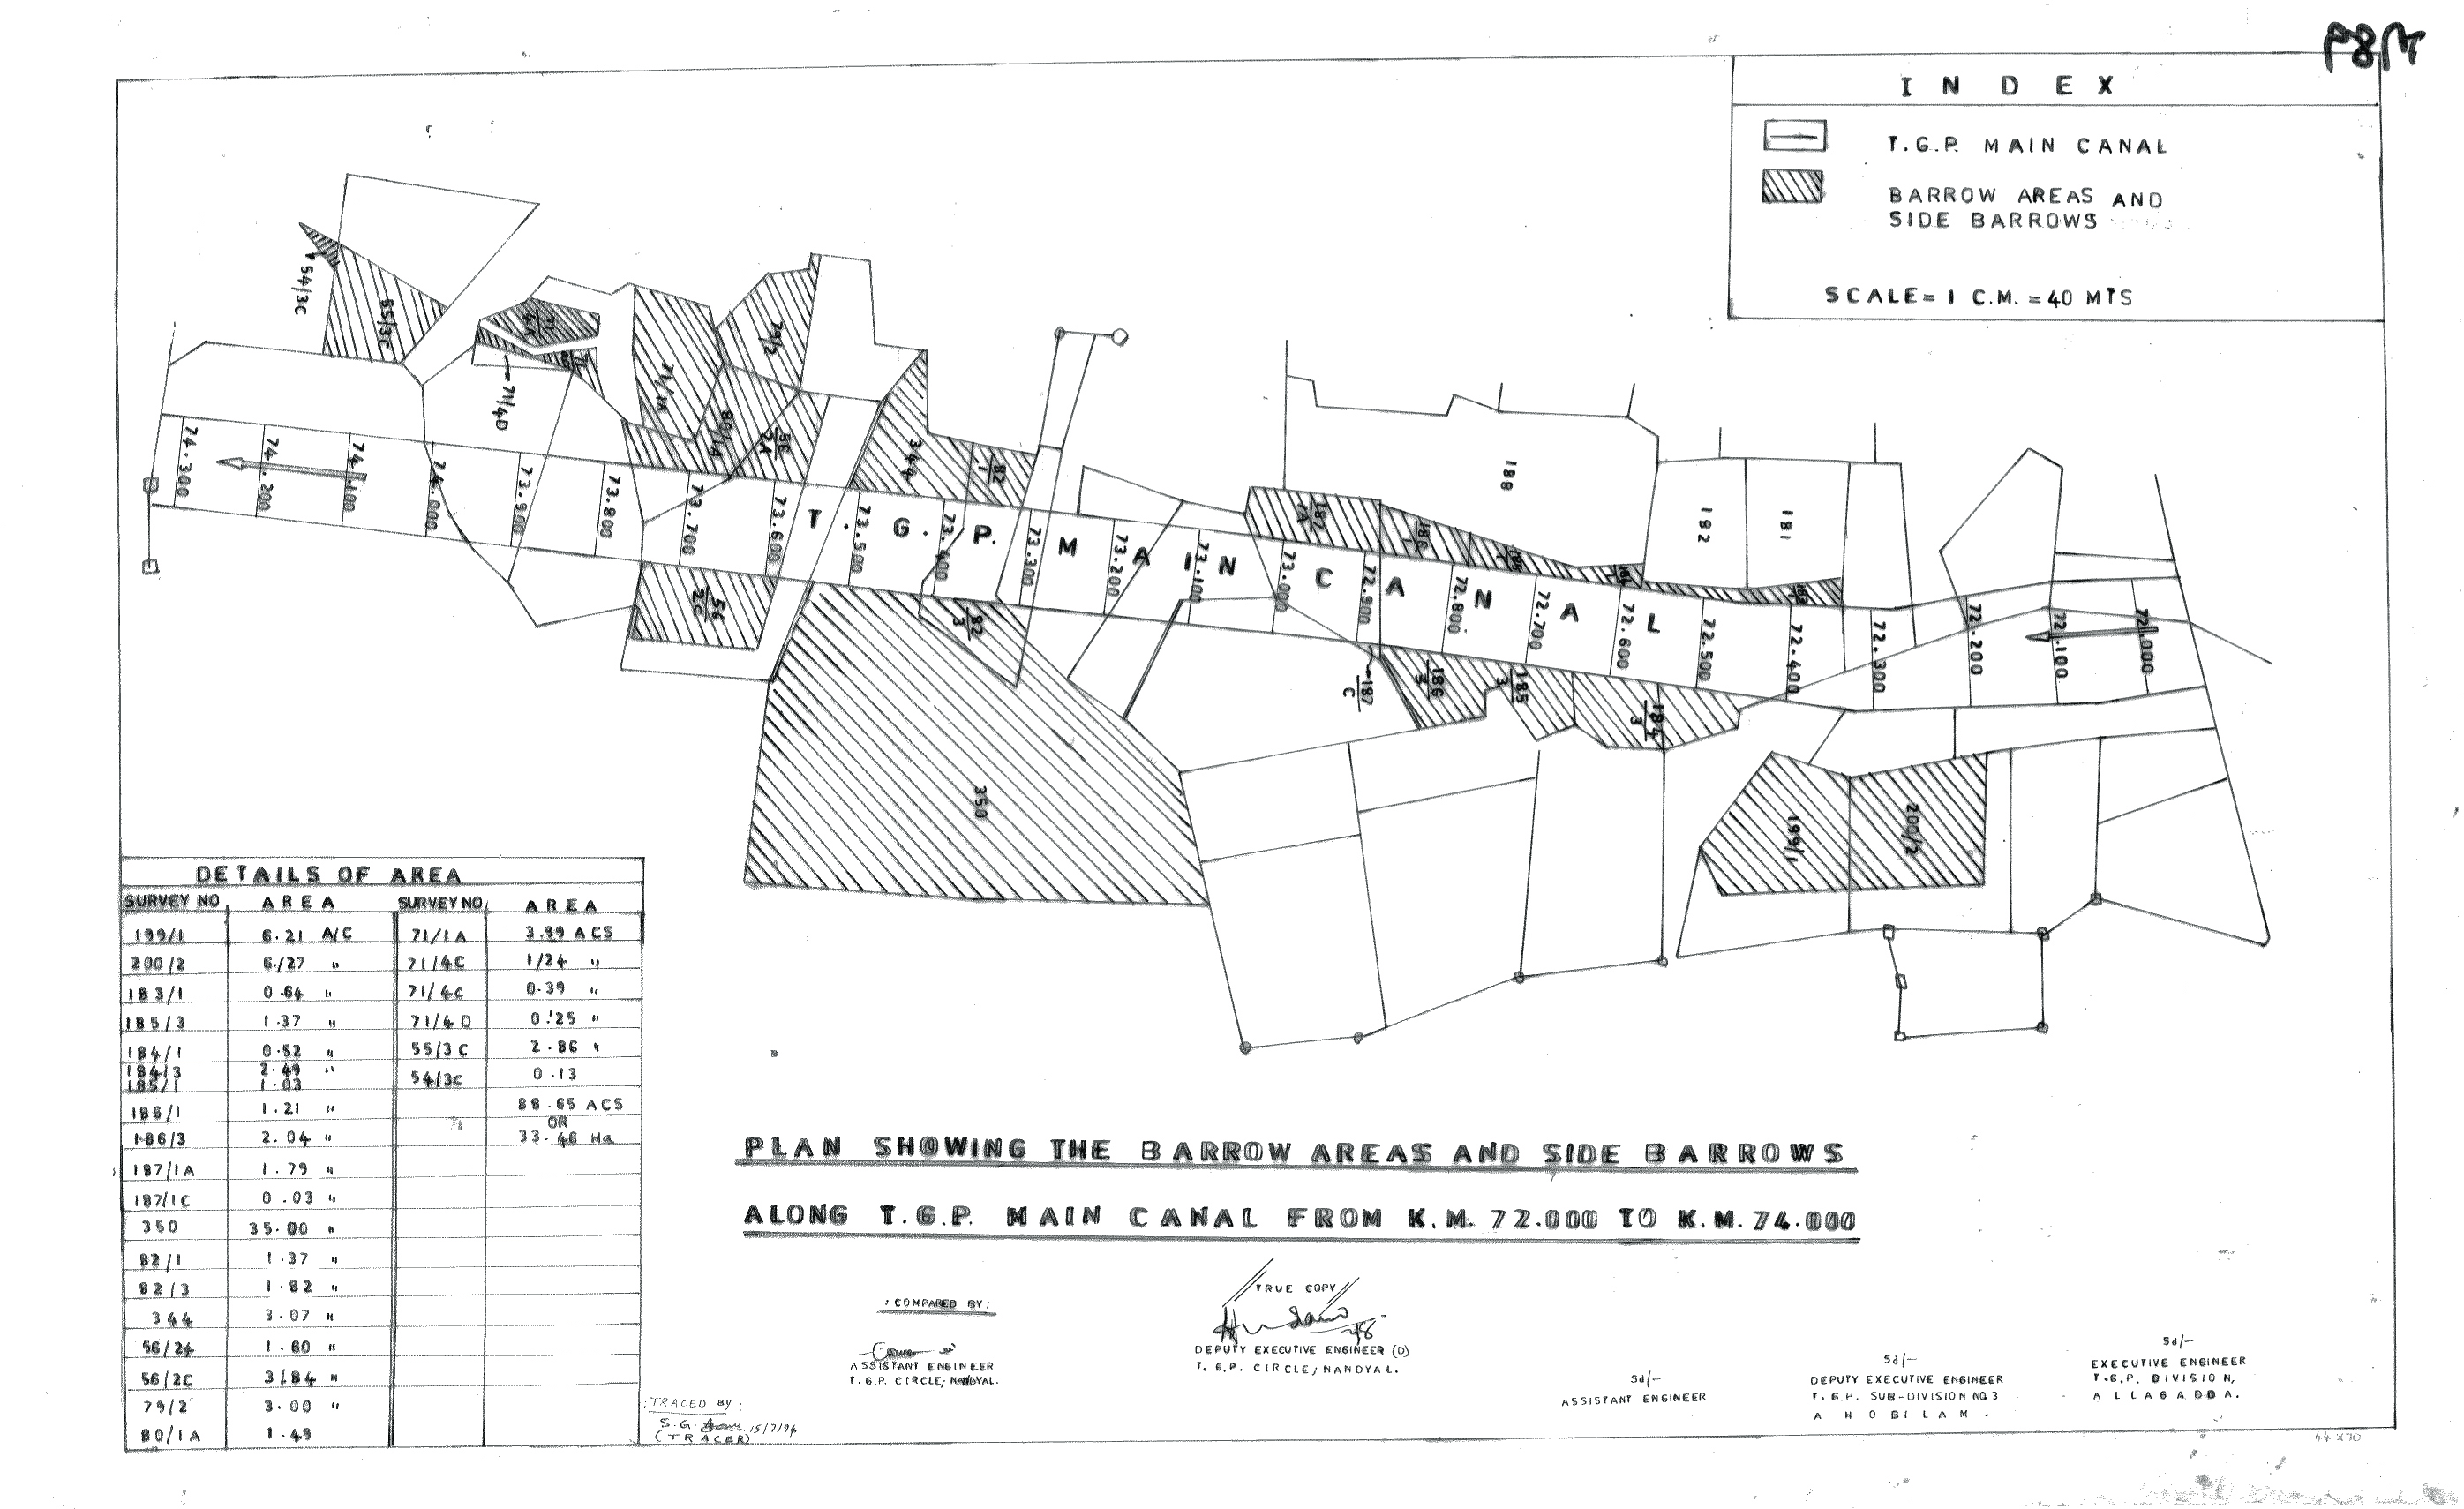 I N D E X
T.G.P. MAIN CANAL
BARROW AREAS AND
SIDE BARROWS
SCALE = 1 C.M. = 40 MTS
54/3C
55/3C
71/4D
71/1A
79/2
80/1A
56/2A
344
82/1
187/1A
186/1
188
182
181
74.300
74.200
74.100
74.000
73.900
73.800
73.700
73.600
73.500
73.400
73.300
73.200
73.100
73.000
72.900
72.800
72.700
72.600
72.500
72.400
72.300
72.200
72.100
72.000
T. G. P. M A I N C A N A L
56/2C
82/3
350
187/C
186/3
185/3
184/3
199/1
200/2
DETAILS OF AREA
SURVEY NO. AREA SURVEY NO. AREA
199/1 6.21 A/C 71/1A 3.99 ACS
200/2 6./27 " 71/4C 1/24 "
183/1 0.64 " 71/4C 0.39 "
185/3 1.37 " 71/4D 0.25 "
184/1 0.52 " 55/3C 2.86 "
184/3 2.49 " 54/3C 0.13
185/1 1.03
186/1 1.21 " 88.65 ACS
OR
186/3 2.04 " 33.46 Ha
187/1A 1.79 "
187/1C 0.03 "
350 35.00 "
82/1 1.37 "
82/3 1.82 "
344 3.07 "
56/24 1.60 "
56/2C 3/.84 "
79/2 3.00 "
80/1A 1.49
PLAN SHOWING THE BARROW AREAS AND SIDE BARROWS
ALONG T.G.P. MAIN CANAL FROM K.M. 72.000 TO K.M. 74.000
: COMPARED BY :
ASSISTANT ENGINEER
T.G.P. CIRCLE, NANDYAL.
TRUE COPY
DEPUTY EXECUTIVE ENGINEER (D)
T.G.P. CIRCLE, NANDYAL.
: TRACED BY :
S.G. 15/7/94
(TRACER)
Sd/-
ASSISTANT ENGINEER
Sd/-
DEPUTY EXECUTIVE ENGINEER
T.G.P. SUB-DIVISION NO 3
A H O B I L A M .
Sd/-
EXECUTIVE ENGINEER
T.G.P. DIVISION,
A L L A G A D D A .
44 x 70